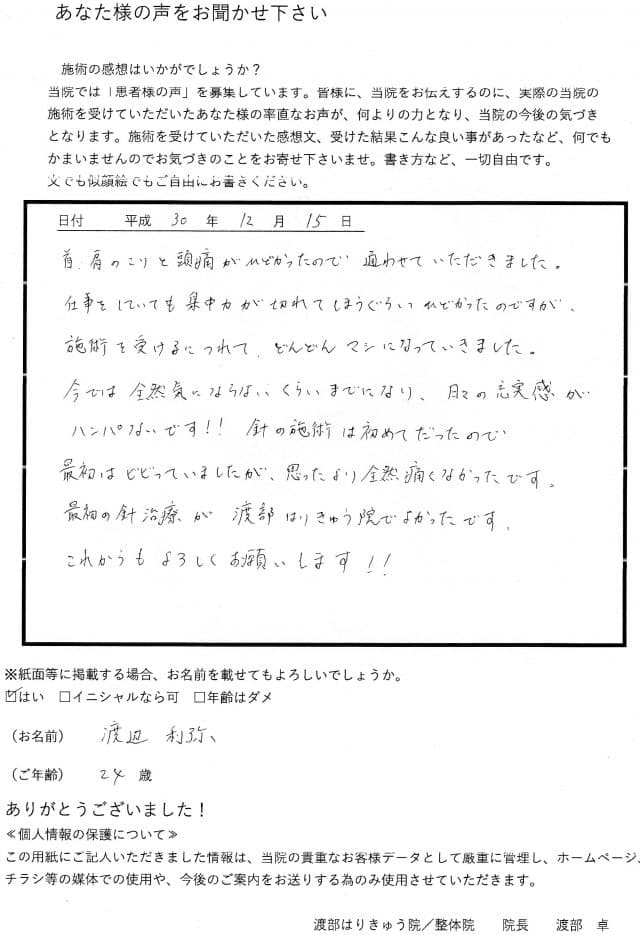 あなた様の声をお聞かせ下さい
施術の感想はいかがでしょうか？
当院では「患者様の声」を募集しています。皆様に、当院をお伝えするのに、実際の当院の
施術を受けていただいたあなた様の率直なお声が、何よりの力となり、当院の今後の気づき
となります。施術を受けていただいた感想文、受けた結果こんな良い事があったなど、何でも
かまいませんのでお気づきのことをお寄せ下さいませ。書き方など、一切自由です。
文でも似顔絵でもご自由にお書きください。
日付 平成 30 年 12 月 15 日
首、肩のこりと頭痛がひどかったので 通わせていただきました。
仕事をしていても集中力が切れてしまうぐらいひどかったのですが、
施術を受けるにつれて、どんどんマシになっていきました。
今では全然気にならないくらいまでになり、日々の充実感が
ハンパないです!! 針の施術は初めてだったので
最初はビビっていましたが、思ったより全然痛くなかったです。
最初の針治療が 渡部はりきゅう院でよかったです。
これからもよろしくお願いします!!
※紙面等に掲載する場合、お名前を載せてもよろしいでしょうか。
☑はい □イニシャルなら可 □年齢はダメ
（お名前） 渡辺 利弥
（ご年齢） 24 歳
ありがとうございました！
≪個人情報の保護について≫
この用紙にご記入いただきました情報は、当院の貴重なお客様データとして厳重に管理し、ホームページ、
チラシ等の媒体での使用や、今後のご案内をお送りする為のみ使用させていただきます。
渡部はりきゅう院／整体院 院長 渡部 卓